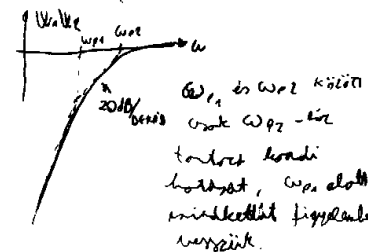 ωp1 ωp2
ω
20dB/DEKÁD
ωp1 és ωp2 között
csak ωp2-höz
tartozó
hatását, ωp1 előtt
mindkettőt figyelembe
vesszük.